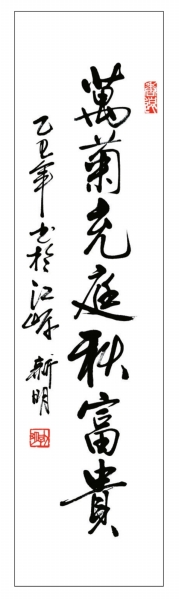 萬菊充庭秋富貴
乙丑年書於江岸新明